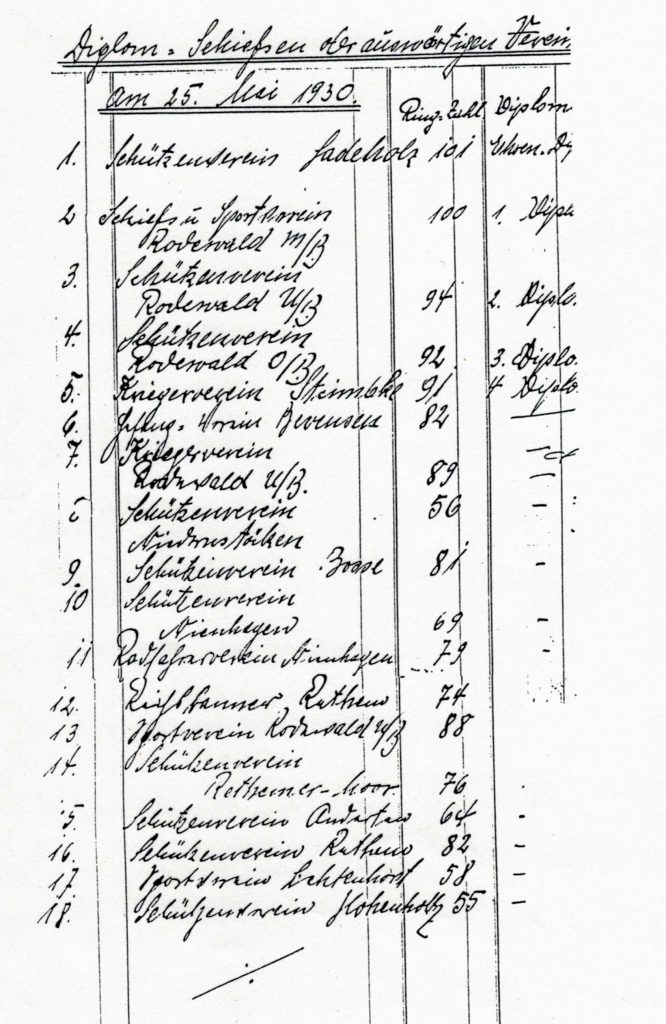 Diplom-Schiessen der auswärtigen Verein
Am 25. Mai 1930.
Ring-Zahl Diplom
1. Schützenverein 101 Ehren-Di
2 Schiess u Sportverein 100 1. Dipl
Rodewald M/B
3. Schützenverein
Rodewald U/B 94 2. Diplo.
4. Schützenverein
Rodewald O/B 92 3. Diplo.
5. Kriegerverein Steimbke 91 4 Diplo.
6. Verein Bevensen 82 —
7. Kriegerverein —
Rodewald U/B. 89 —
8 Schützenverein 56 -
Niedernstöcken
9. Schützenverein Bosse 81 -
10 Schützenverein
Nienhagen 69 -
11 Radfahrerverein Nienhagen 79 -
12. Reichsbanner, Rethem 74
13 Sportverein Rodewald U/B 88
14. Schützenverein
Rethemer-Moor. 76
5. Schützenverein Anderten 64 -
16. Schützenverein Rethem 82 -
17. Sportverein Lichtenhorst 58 -
18. Schützenverein Hohenholz 55 -